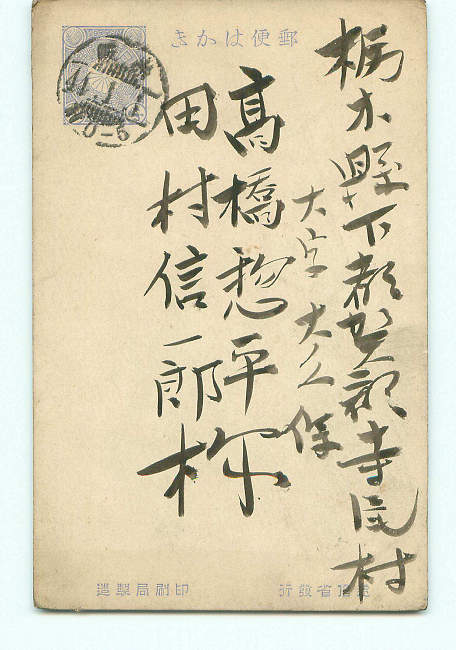 郵便はかき
栃木縣下都賀郡寺尾村
大字大久保
高橋惣平様
田村信一郎様
逓信省發行
印刷局製造